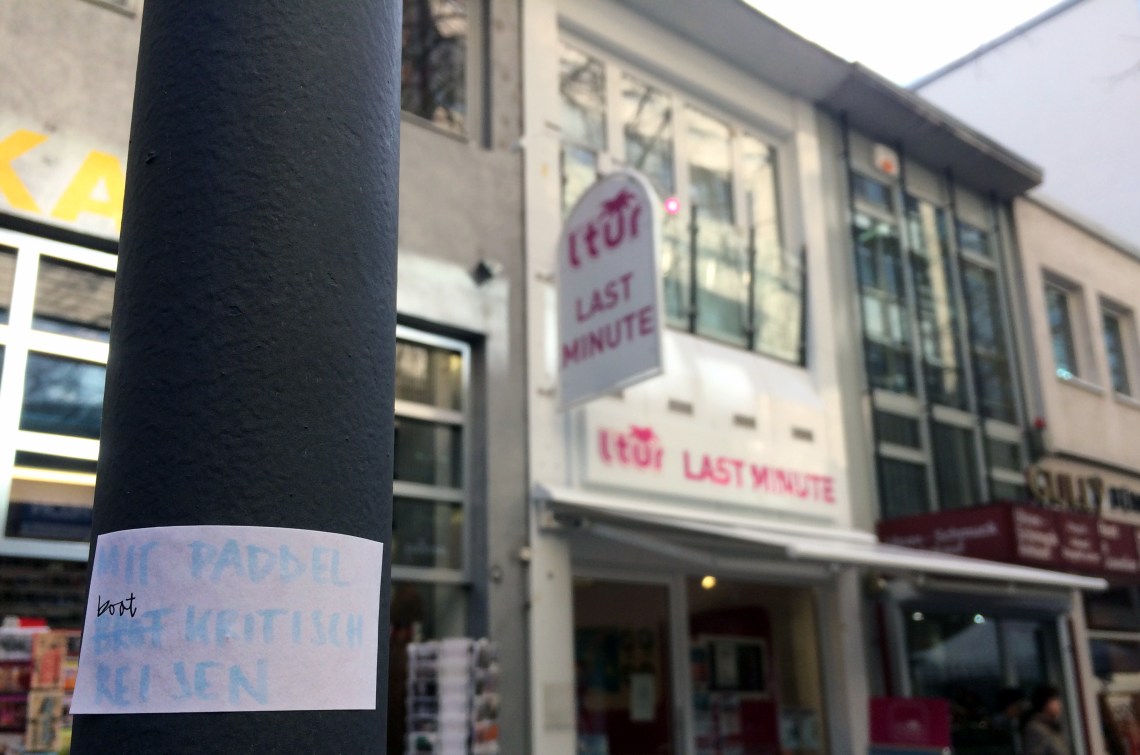 KA
MIT PADDEL
boat
BOOT KRITISCH
REISEN
ltur
LAST
MINUTE
ltur LAST MINUTE